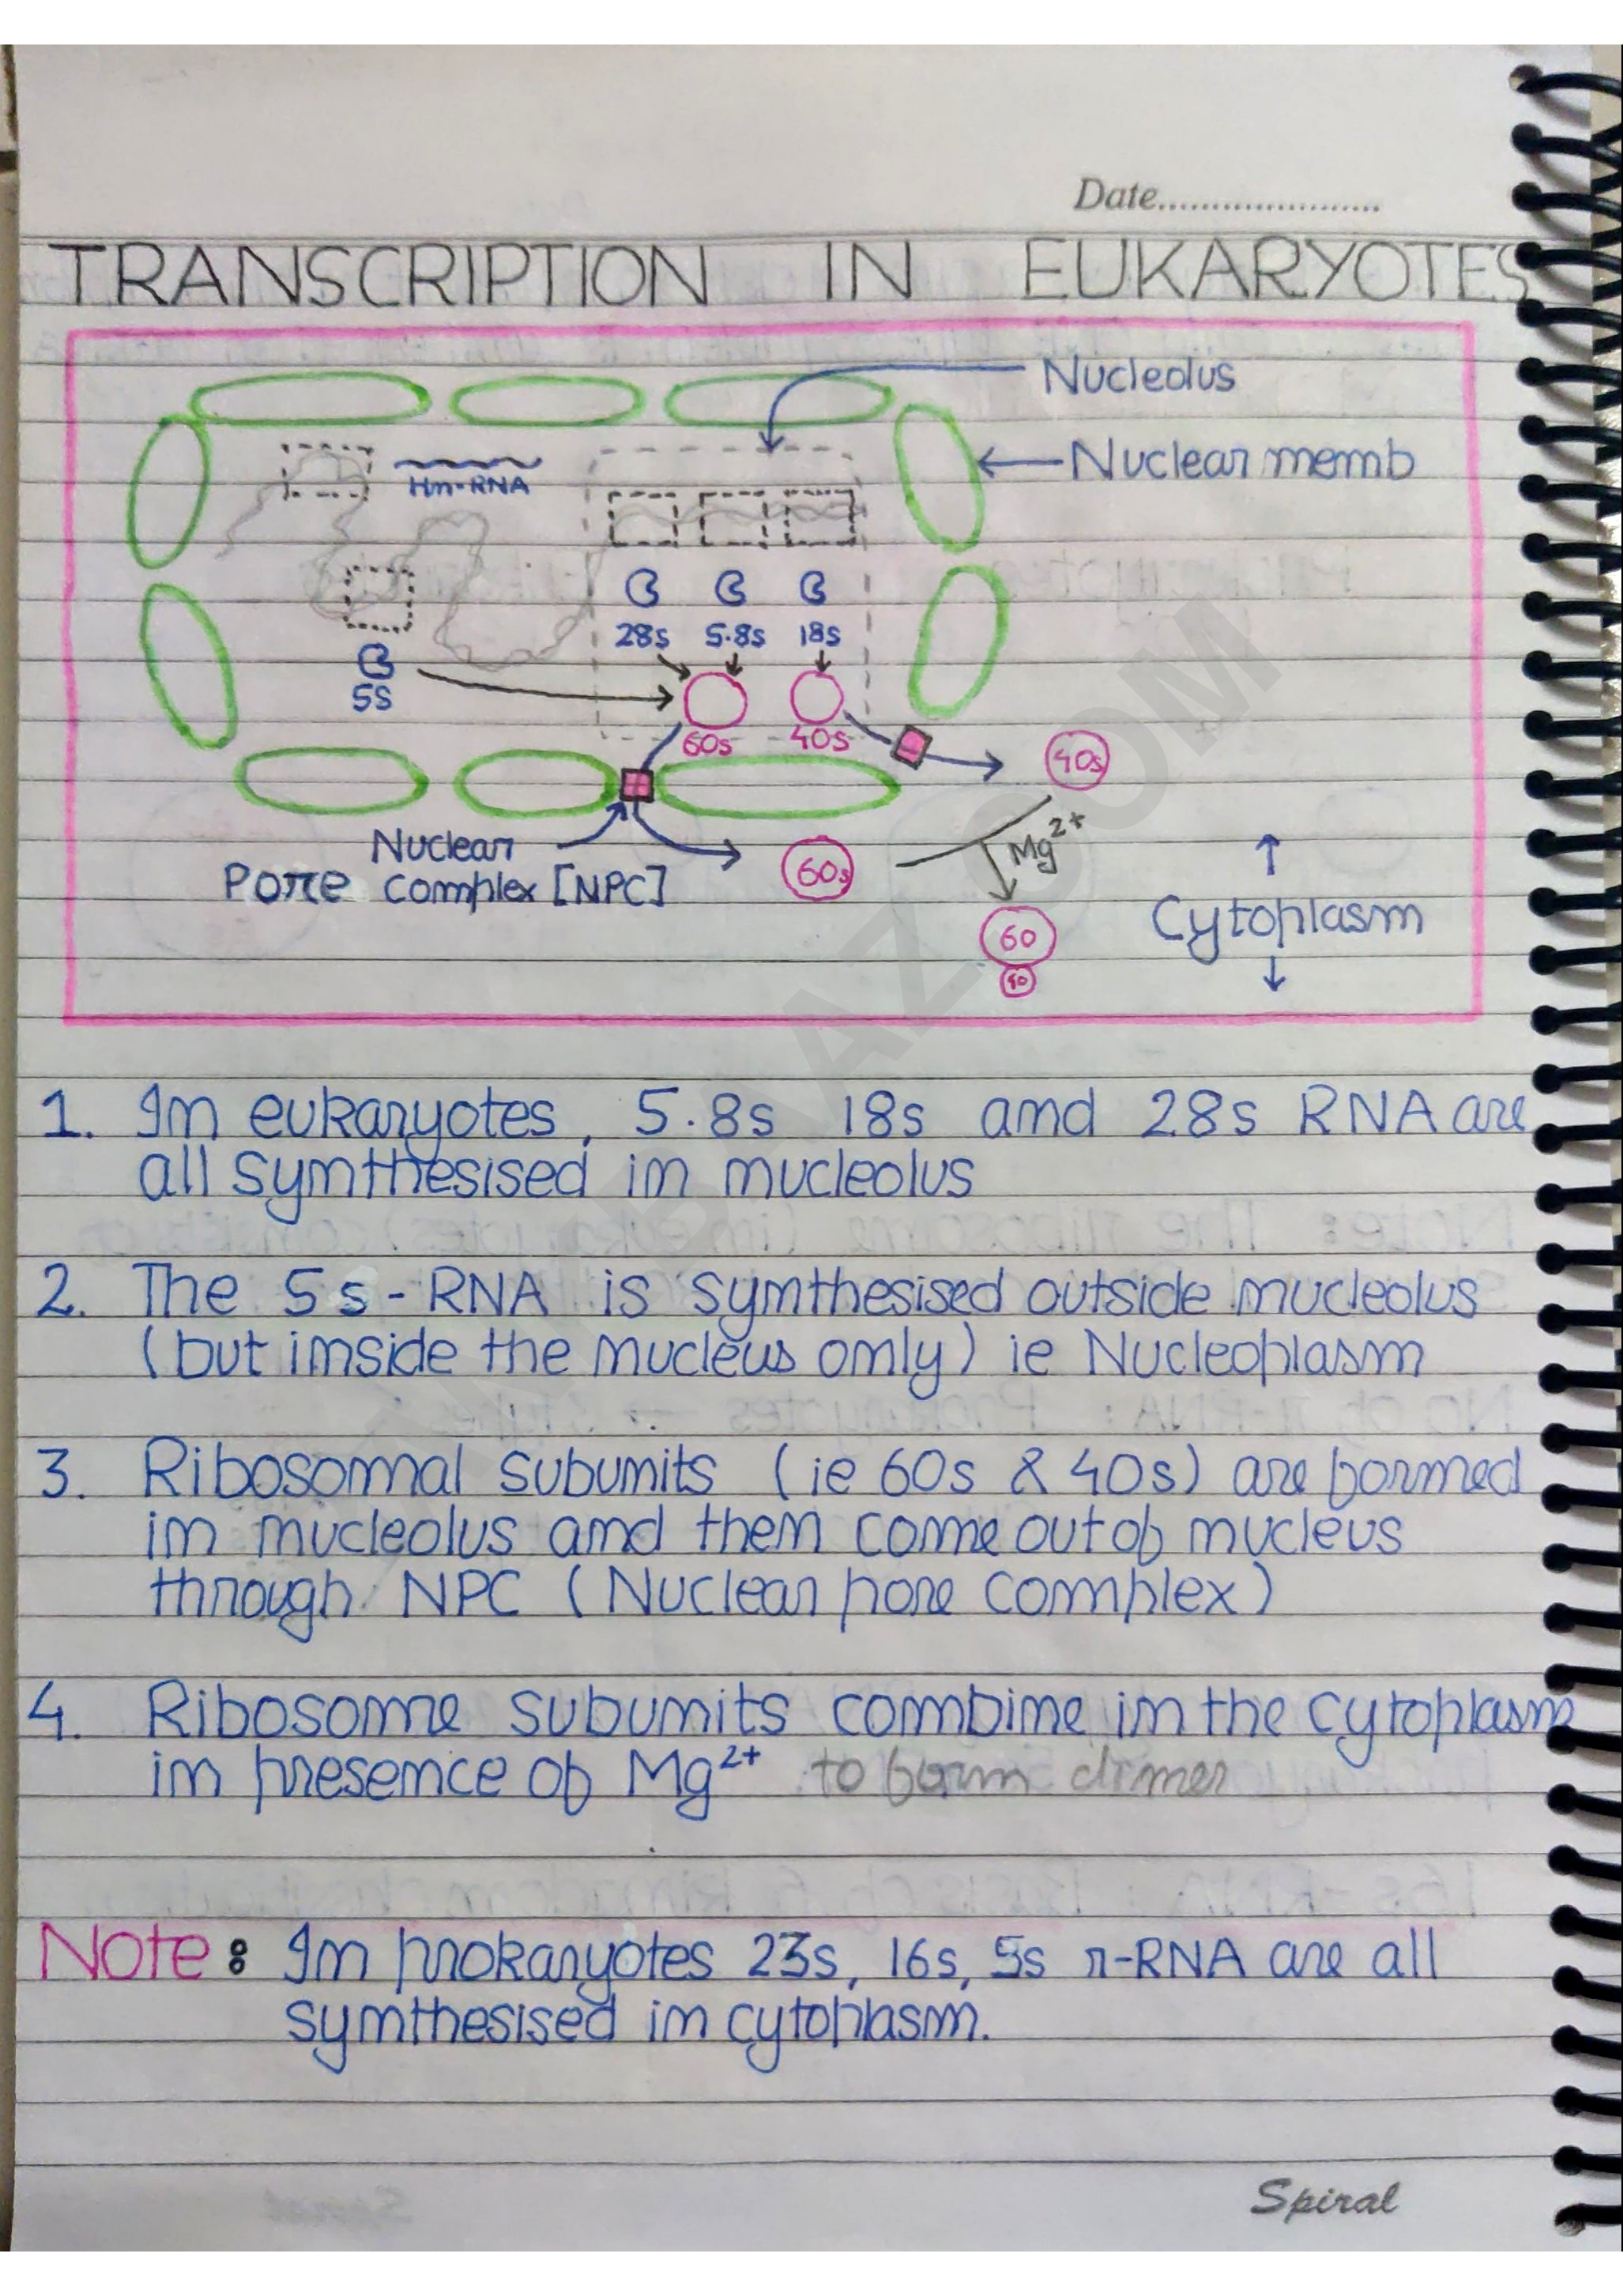 Date.....................
TRANSCRIPTION IN EUKARYOTES
Nucleolus
Nuclear memb
Hn-RNA
28s 5.8s 18s
5s
60s 40s
40s
Mg2+
Nuclear
Pore complex [NPC]
60s
60
40
Cytoplasm
1. In eukaryotes, 5.8s 18s and 28s RNA are
all synthesised in nucleolus
2. The 5s-RNA is synthesised outside nucleolus
(but inside the nucleus only) ie Nucleoplasm
3. Ribosomal subunits (ie 60s & 40s) are formed
in nucleolus and then come out of nucleus
through NPC (Nuclear pore complex)
4. Ribosome subunits combine in the cytoplasm
in presence of Mg2+ to form dimer
Note: In prokaryotes 23s, 16s, 5s r-RNA are all
synthesised in cytoplasm.
Spiral